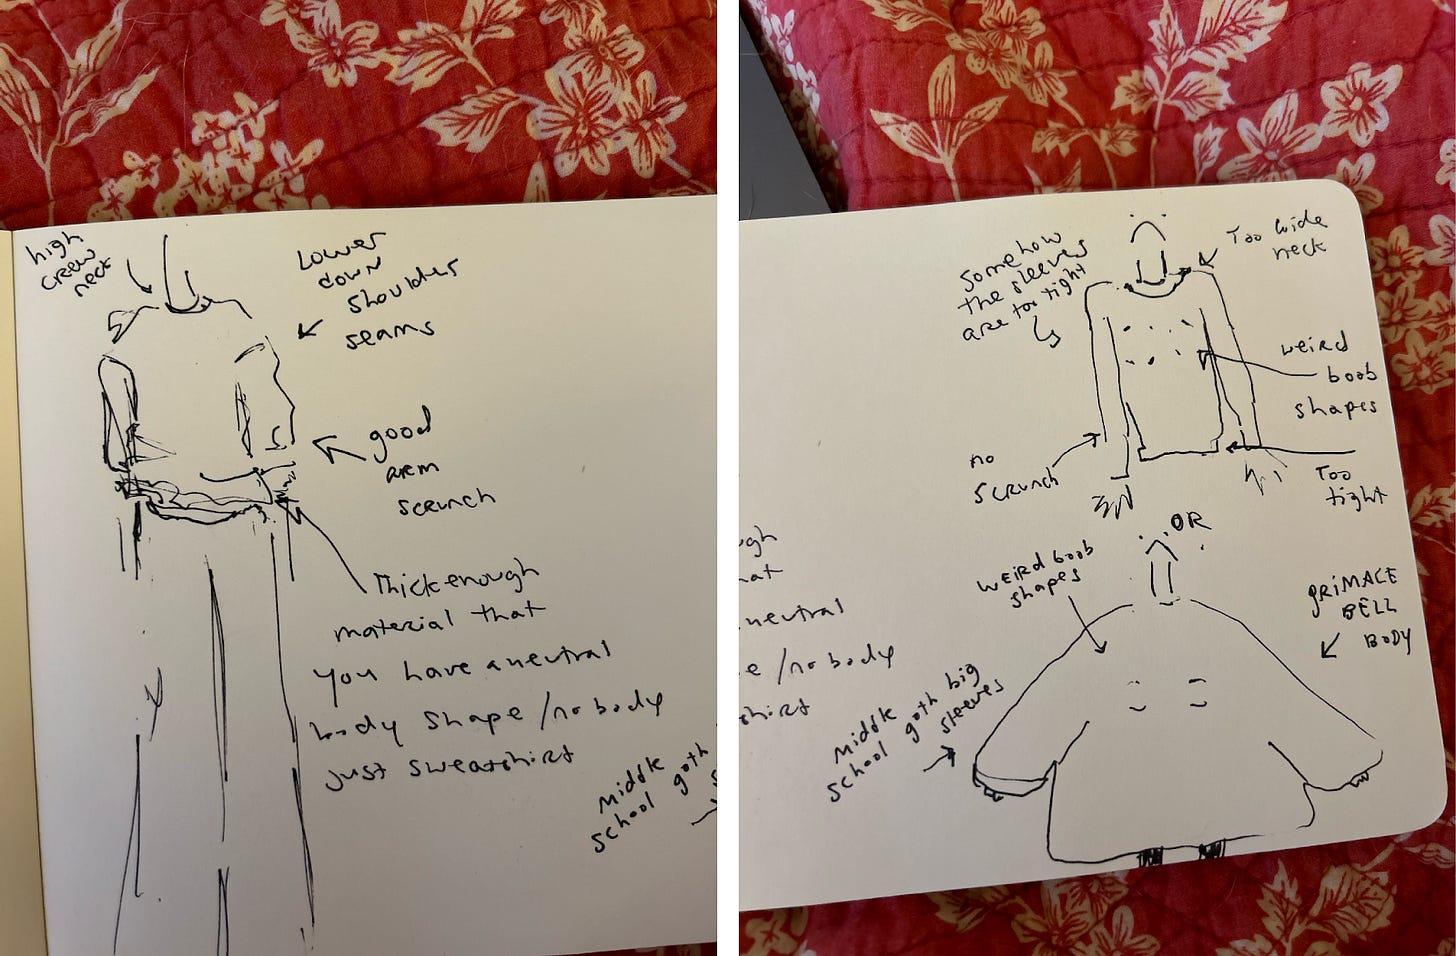 high
crew
neck
Lower
down
shoulder
seams
good
arm
scrunch
Thick enough
material that
you have a neutral
body shape / no body
just sweatshirt
middle
school goth
Somehow
the sleeves
are too tight
Too wide
neck
weird
boob
shapes
no
scrunch
Too
tight
OR
weird boob
shapes
GRIMACE
BELL
BODY
middle
school goth big
sleeves
ugh
hat
neutral
e / no body
shirt